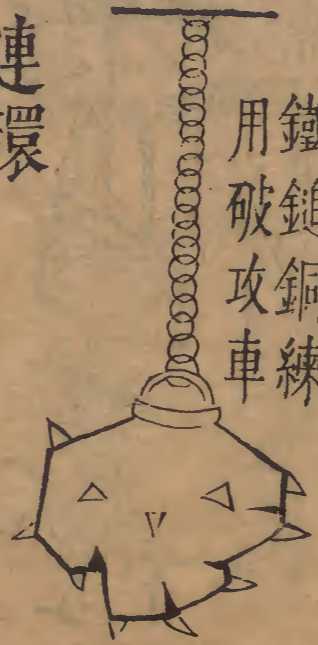 鐵鎚銅練
用破攻車
連環